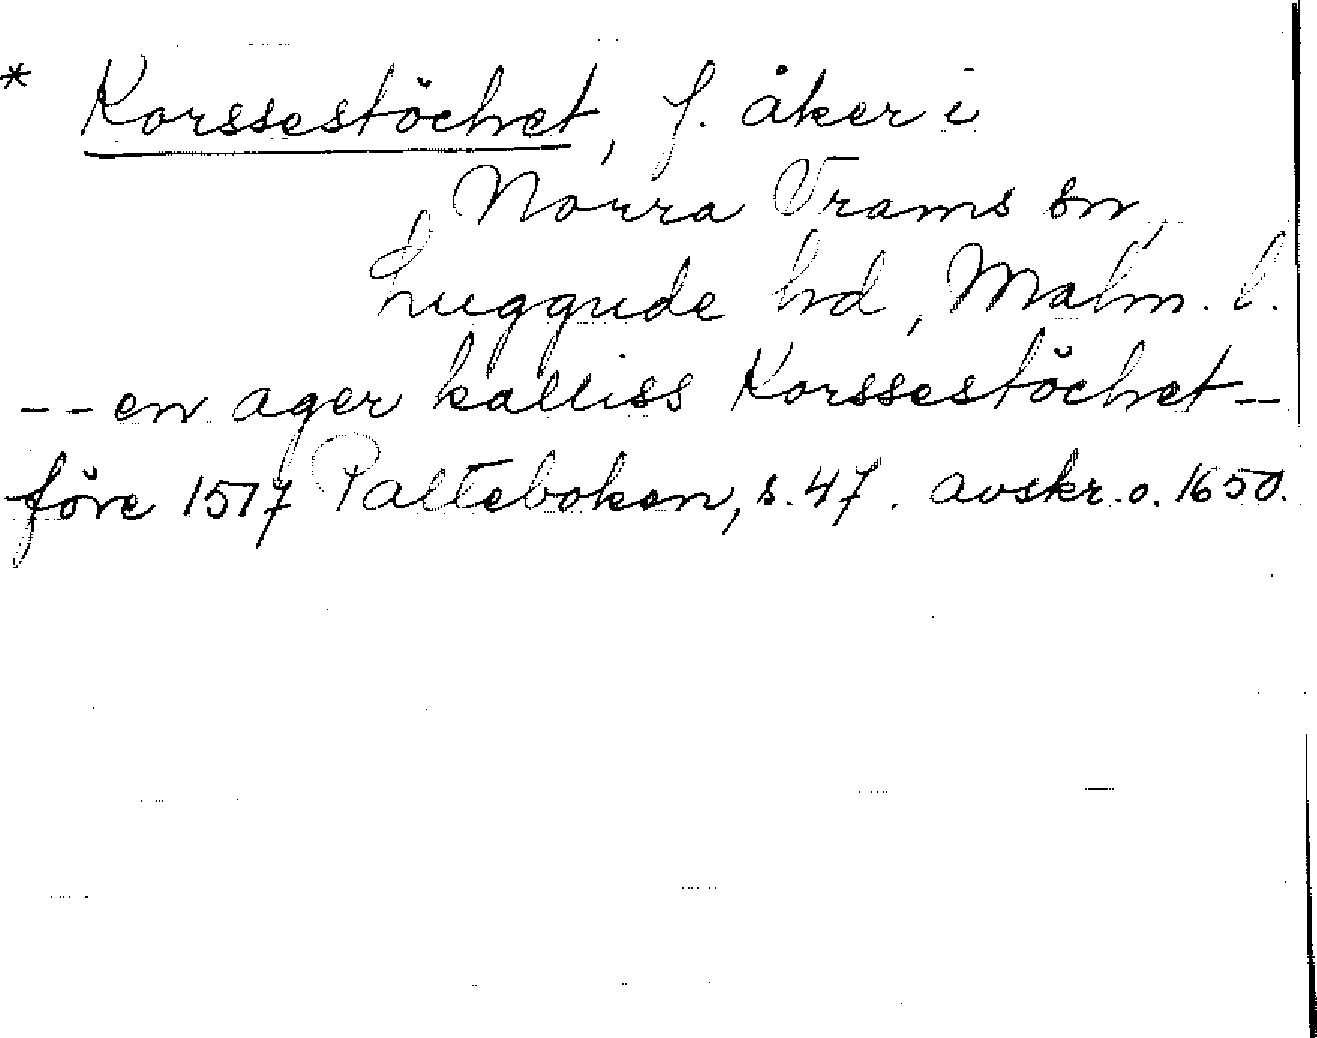 * Korssestöchet, f. åker i
Norra Vrams sn,
Luggude hd, Malm. l.
-- en ager kalliss Korssestöchet -
före 1517 Palteboken, s. 47. avskr. o. 1650.